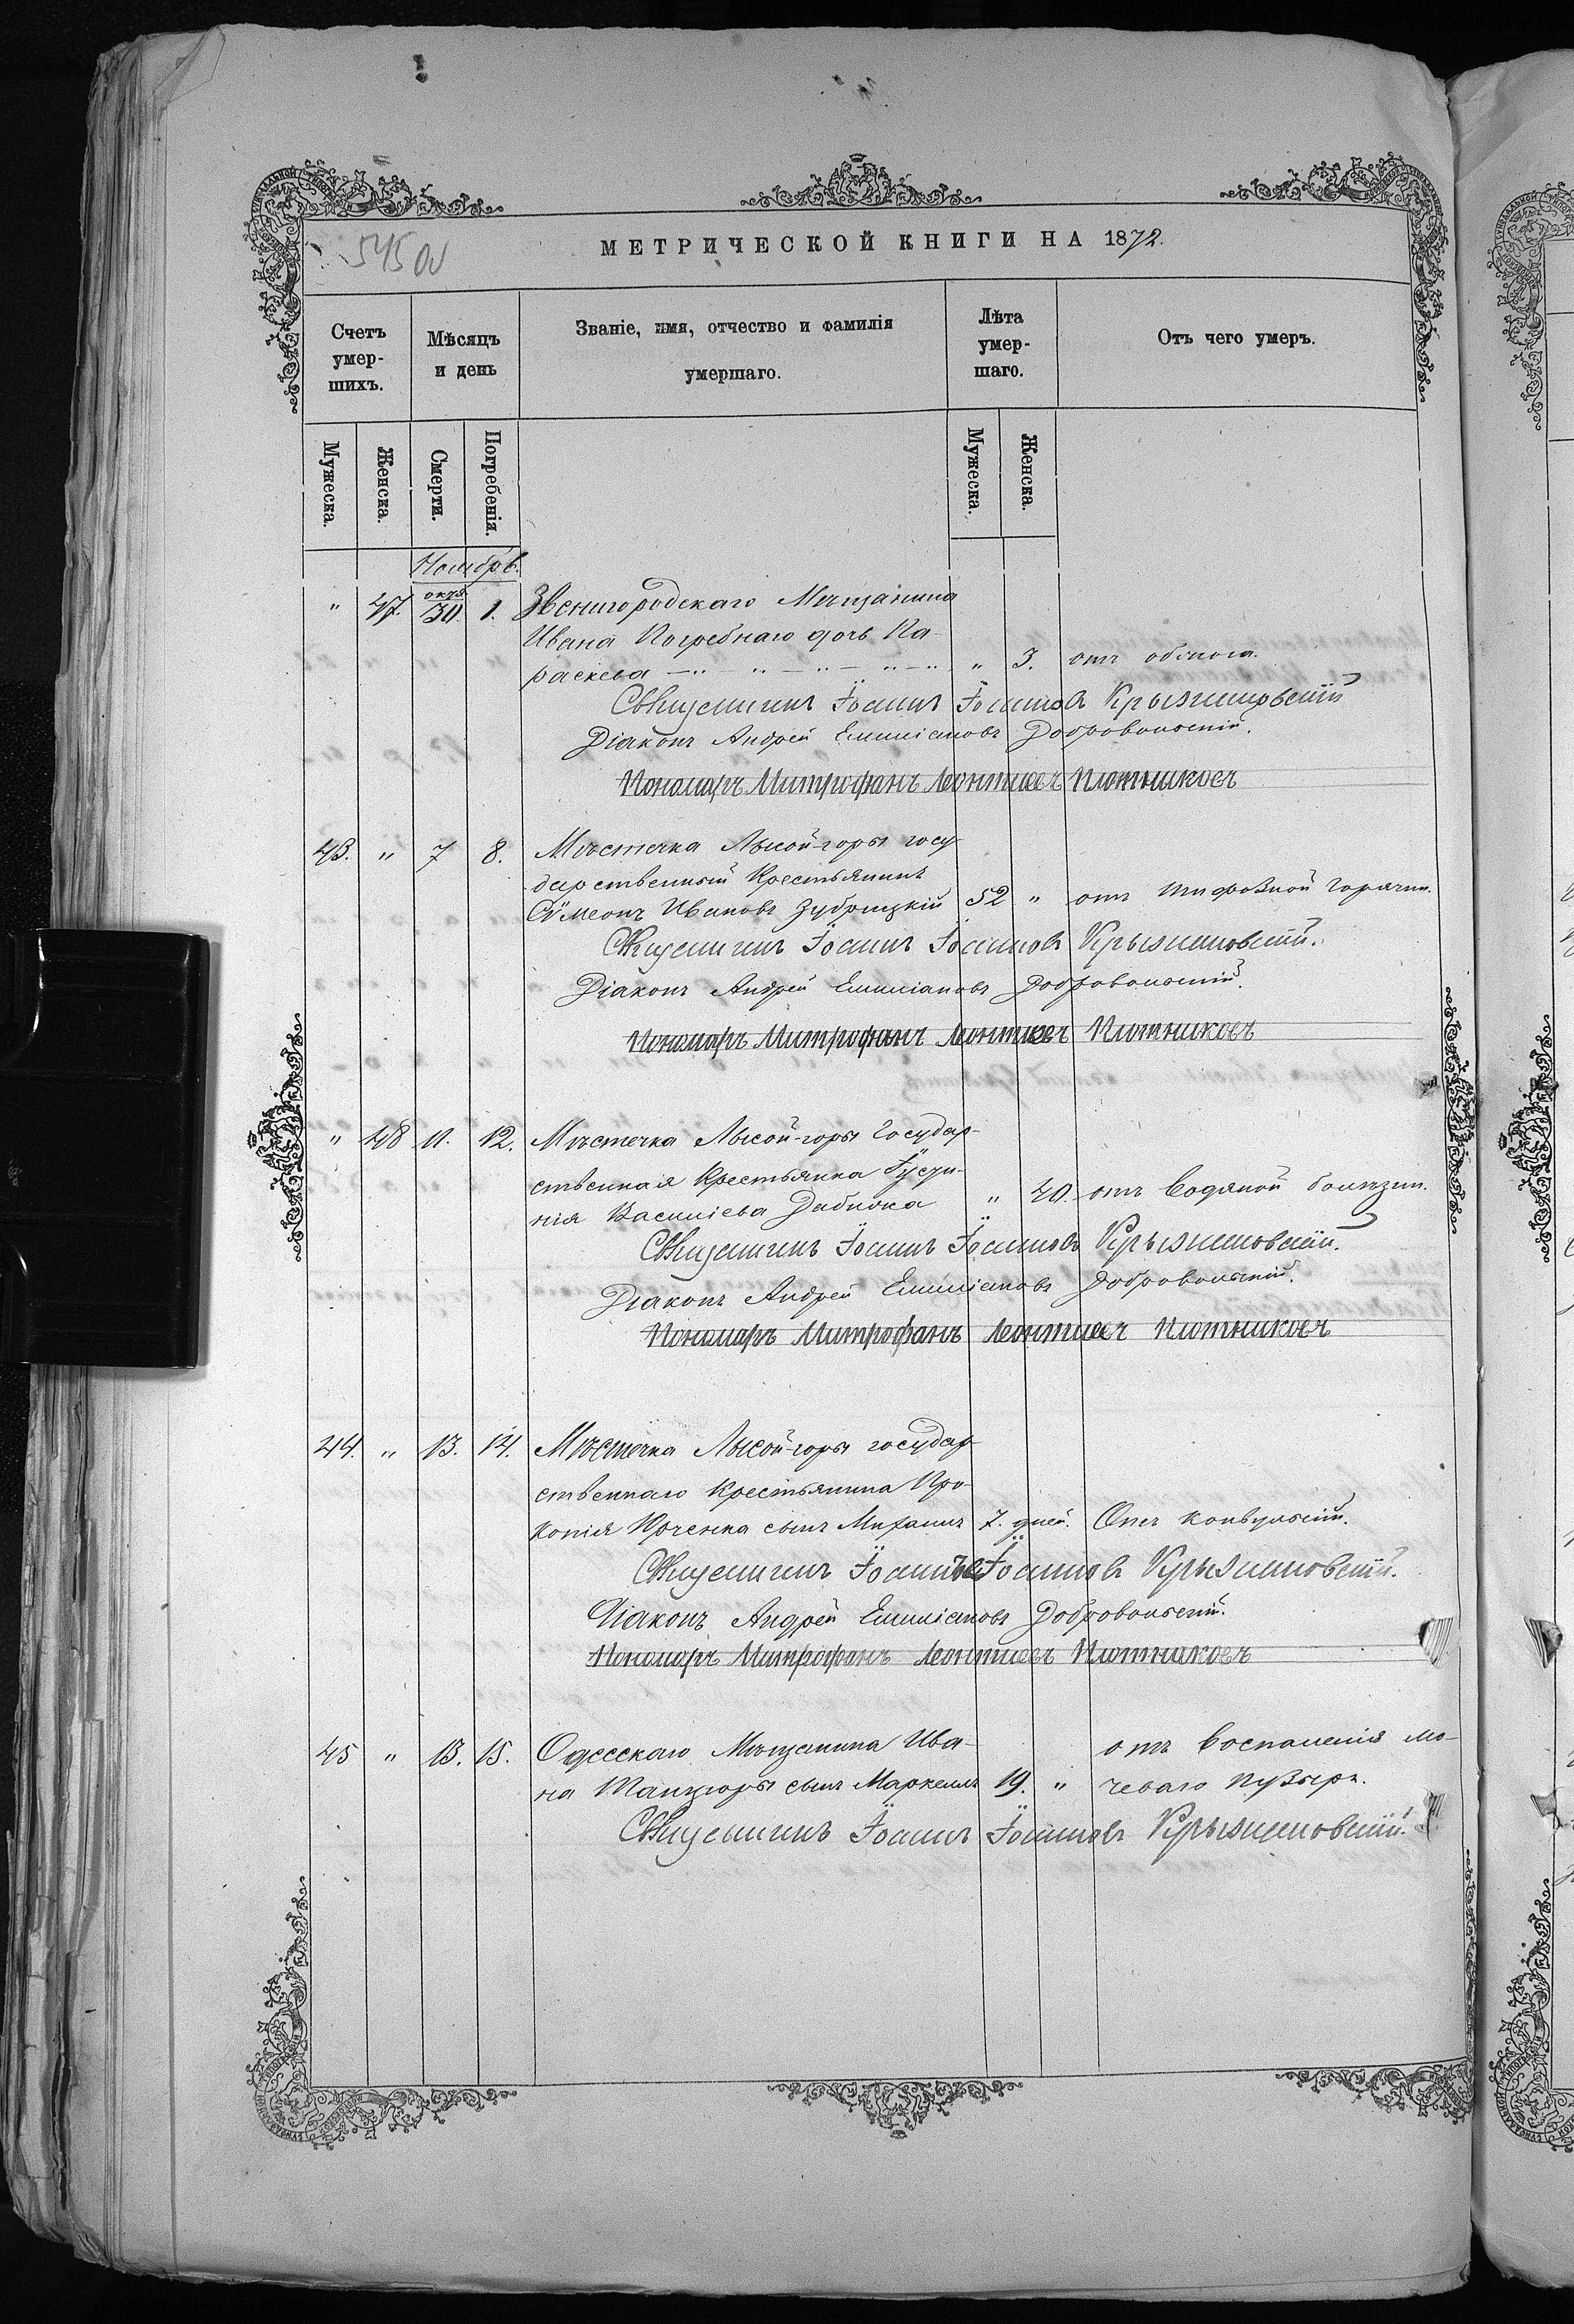 МЕТРИЧЕСКОЙ КНИГИ НА 1872.
Счетъ умер-шихъ.
Мѣсяцъ и день
Званіе, имя, отчество и фамилія умершаго.
Лѣта умер-шаго.
Отъ чего умеръ.
Мужеска.
Женска.
Смерти.
Погребенія.
Мужеска.
Женска.
Ноябрь.
" 47. окт. 30. 1. Звенигородскаго Мѣщанина
Ивана Погребнаго дочь Па-
раскева " 3. отъ обжога.
Священникъ Іоаннъ Іоанновъ Крыжановскій
Діаконъ Андрей Емиліановъ Добровольскій.
Пономарь Митрофанъ Леонтіевъ Плотниковъ
43. " 7 8. Мѣстечка Лысой-горы госу-
дарственный Крестьянинъ
Сѵмеонъ Ивановъ Зубрицкій 52 " отъ тифозной горячки.
Священникъ Іоаннъ Іоанновъ Крыжановскій.
Діаконъ Андрей Емиліановъ Добровольскій.
Пономарь Митрофанъ Леонтіевъ Плотниковъ
" 48 11. 12. Мѣстечка Лысой-горы Государ-
ственная Крестьянка Іусти-
нія Василіева " 40. отъ водяной болѣзни.
Священникъ Іоаннъ Іоанновъ Крыжановскій.
Діаконъ Андрей Емиліановъ Добровольскій.
Пономарь Митрофанъ Леонтіевъ Плотниковъ
44. " 13. 14. Мѣстечка Лысой-горы государ-
ственнаго Крестьянина Про-
копія Юрченка сынъ Михаилъ 7. дней. Отъ конвульсій.
Священникъ Іоаннъ Іоанновъ Крыжановскій.
Діаконъ Андрей Емиліановъ Добровольскій.
Пономарь Митрофанъ Леонтіевъ Плотниковъ
45 " 13. 15. Одесскаго Мѣщанина Ива- отъ воспаленія мо-
на Танцюры сынъ Маркеллъ 19. " чеваго пузыря.
Священникъ Іоаннъ Іоанновъ Крыжановскій.